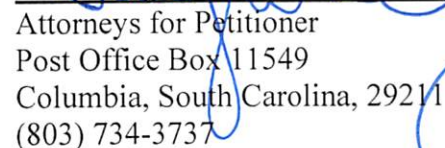 Attorneys for Petitioner
Post Office Box 11549
Columbia, South Carolina, 29211
(803) 734-3737